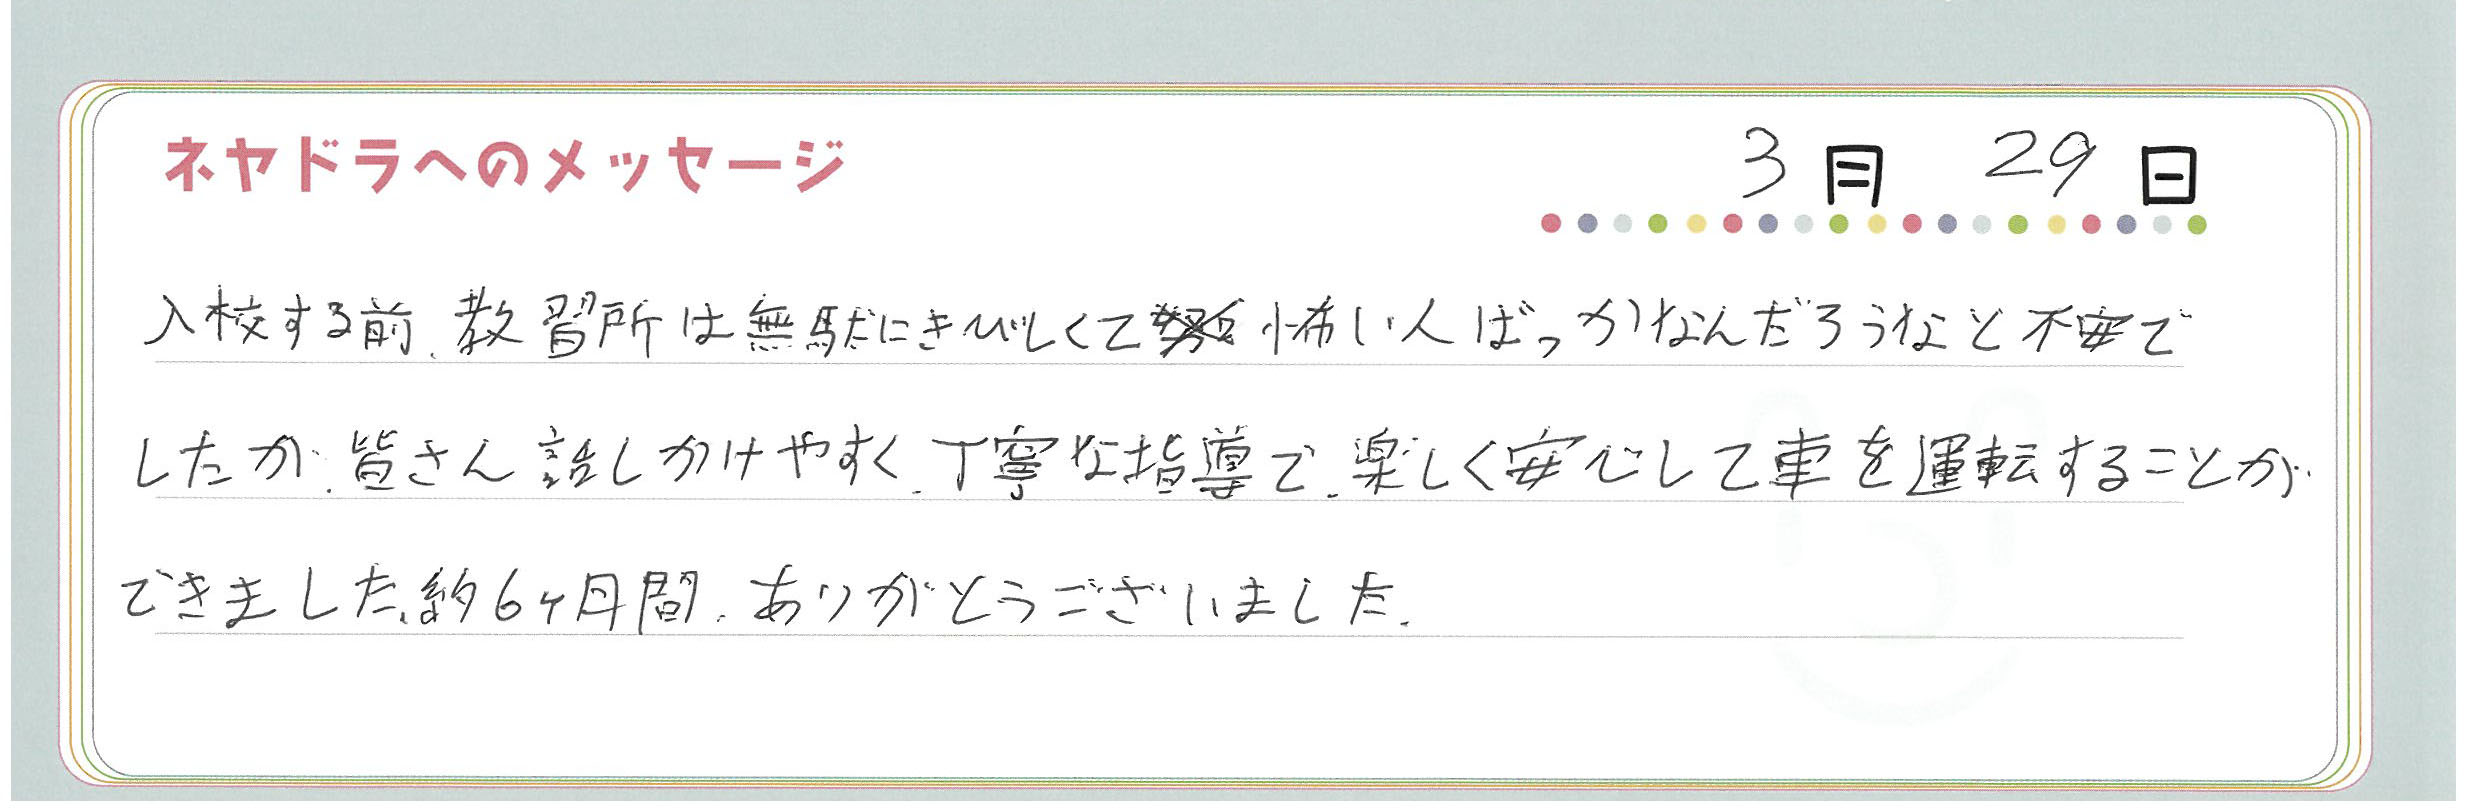 ネヤドラへのメッセージ
3月 29日
入校する前、教習所は無駄にきびしくて怖い人ばっかなんだろうなと不安で
したが、皆さん話しかけやすく、丁寧な指導で、楽しく安心して車を運転することが
できました。約6ヶ月間、ありがとうございました。